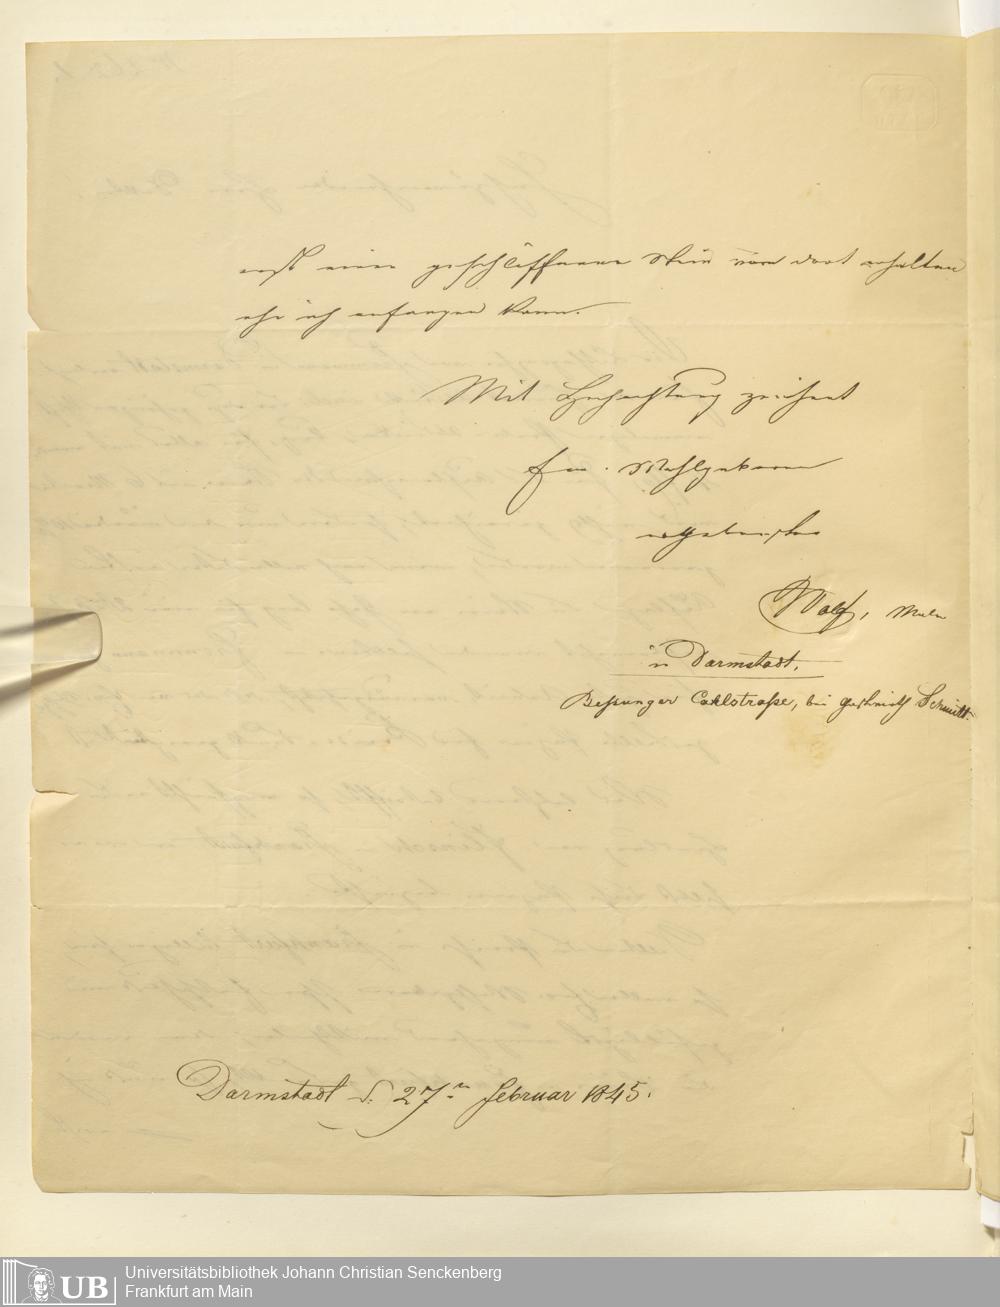 erst einen geschliffenen Stein von dort erhalten
ehe ich anfangen kann.
Mit Hochachtung zeichnet
Ew. Wohlgeboren
ergebenster
Wolf, Maler
in Darmstadt.
Bessunger Carlstraße, bei Schmitt.
Darmstadt d. 27n Februar 1845.
UB
Universitätsbibliothek Johann Christian Senckenberg
Frankfurt am Main